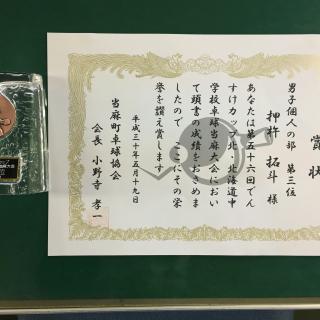 賞状
男子個人の部 第三位
押杵 拓斗 様
あなたは第五十六回でん
すけカップ北・北海道中
学校卓球当麻大会におい
て頭書の成績をおさめま
したので ここにその栄
誉を讃え賞します
平成三十年五月十九日
当麻町卓球協会
会長 小野寺 孝一